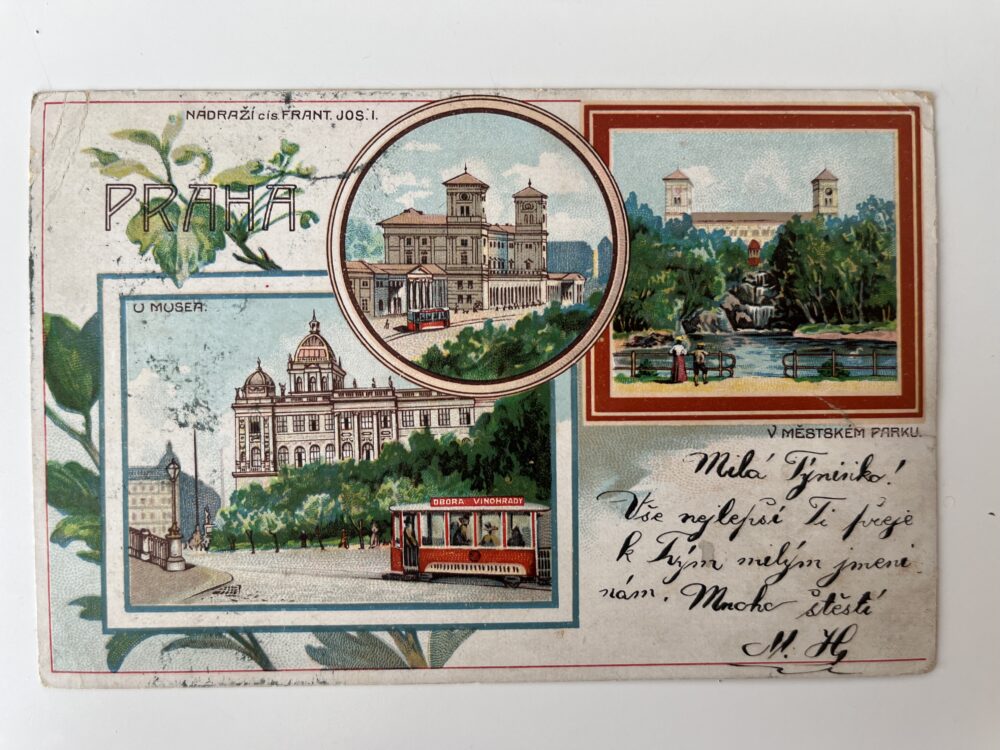 NÁDRAŽÍ cís. FRANT. JOS. I.
PRAHA
U MUSEA.
OBORA VINOHRADY
V MĚSTSKÉM PARKU.
Milá
Vše nejlepší Ti přeje
k Tvým milým jmeni
nám. Mnoho štěstí
M. H